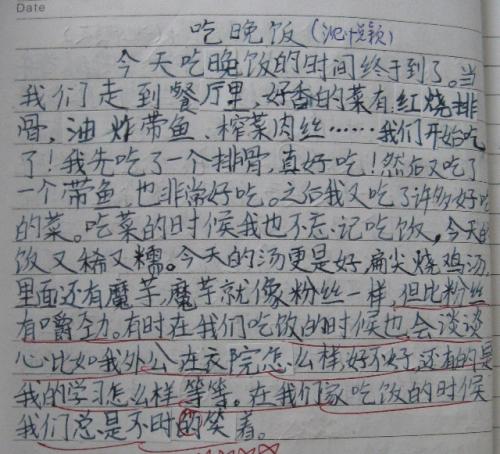 Date
吃晚饭(沈悦颖)
今天吃晚饭的时间终于到了。当
我们走到餐厅里,好香的菜有红烧排
骨,油炸带鱼、榨菜肉丝……我们开始吃
了!我先吃了一个排骨,真好吃!然后又吃了
一个带鱼,也非常好吃。之后我又吃了许多好吃
的菜。吃菜的时候我也不忘记吃饭,今天的
饭又稀又糯。今天的汤更是好,扁尖烧鸡汤,
里面还有魔芋,魔芋就像粉丝一样,但比粉丝
有嚼劲。有时在我们吃饭的时候也会谈谈
心比如我外公在衣院怎么样,好不好,还有的是
我的学习怎么样等等。在我们家吃饭的时候
我们总是不时的笑着。